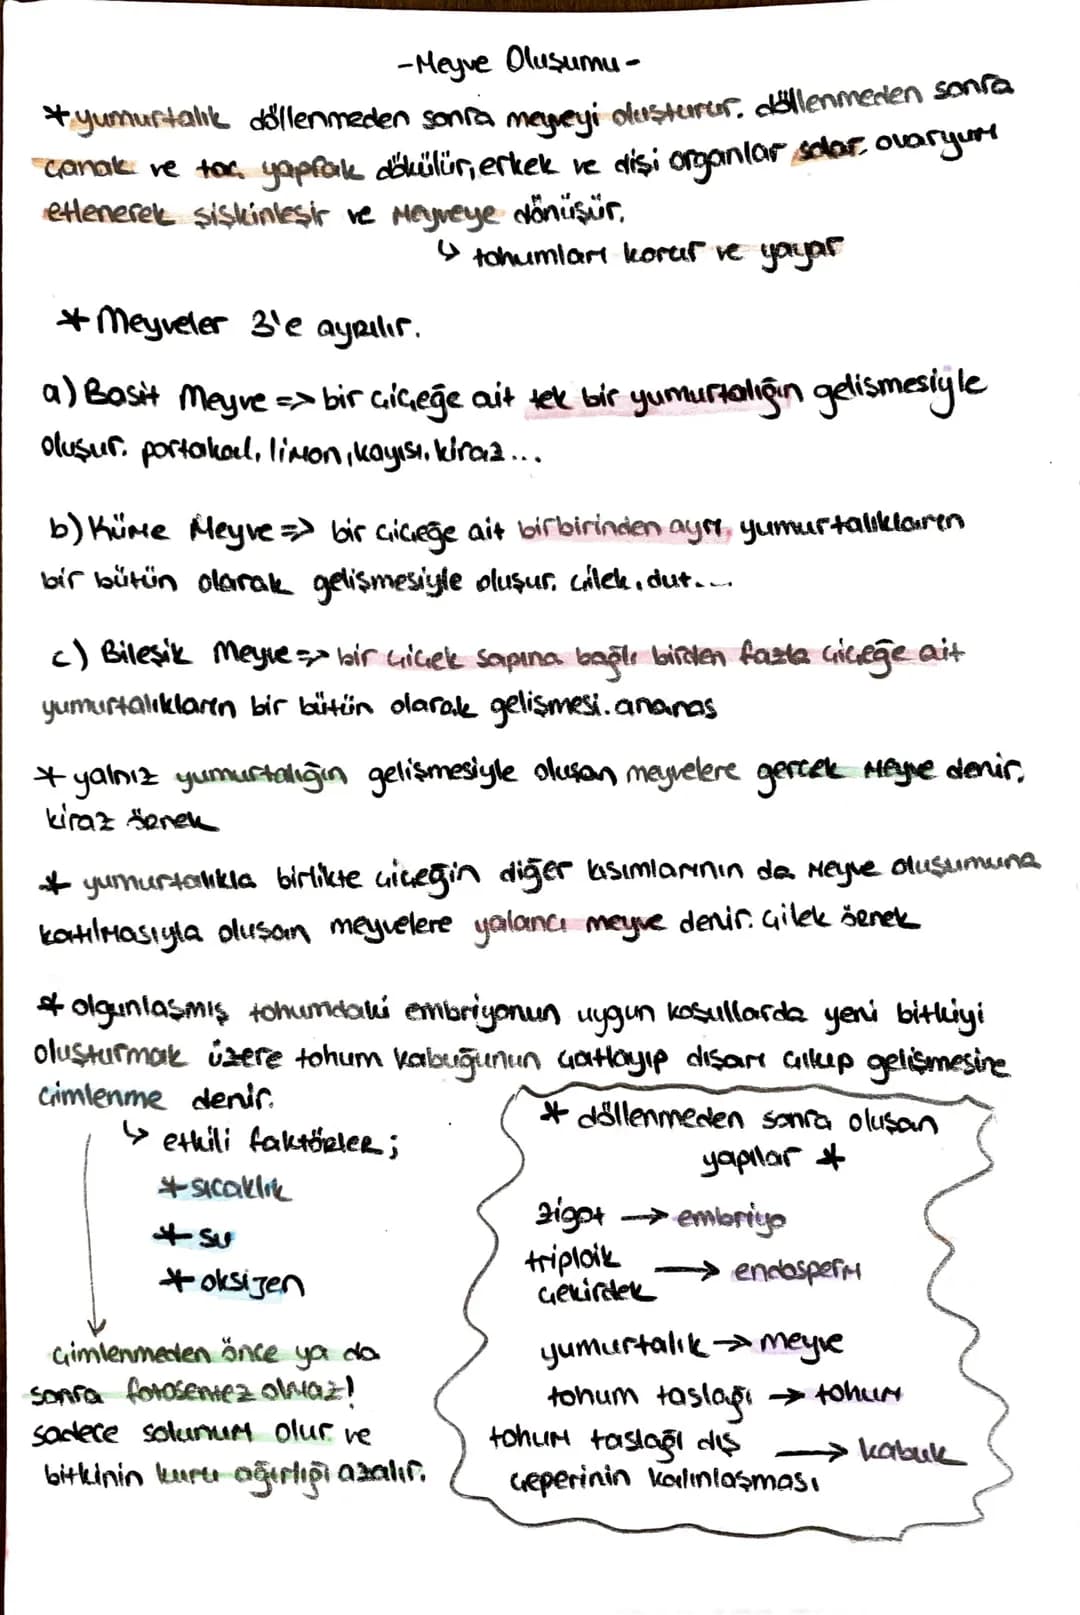 -Meyve Oluşumu-
* yumurtalık döllenmeden sonra meyveyi oluşturur. döllenmeden sonra
çanak ve taç yaprak dökülür, erkek ve dişi organlar solar. ovaryum
etlenerek şişkinleşir ve meyveye dönüşür.
↳ tohumları korur ve yayar
* Meyveler 3'e ayrılır.
a) Basit Meyve => bir çiçeğe ait tek bir yumurtalığın gelişmesiyle
oluşur. portakal, limon, kayısı, kiraz...
b) Küme Meyve => bir çiçeğe ait birbirinden ayrı, yumurtalıkların
bir bütün olarak gelişmesiyle oluşur. çilek, dut....
c) Bileşik Meyve => bir çiçek sapına bağlı birden fazla çiçeğe ait
yumurtalıkların bir bütün olarak gelişmesi. ananas
* yalnız yumurtalığın gelişmesiyle oluşan meyvelere gerçek meyve denir.
kiraz örnek
* yumurtalıkla birlikte çiçeğin diğer kısımlarının da meyve oluşumuna
katılmasıyla oluşan meyvelere yalancı meyve denir. çilek örnek
* olgunlaşmış tohumdaki embriyonun uygun koşullarda yeni bitkiyi
oluşturmak üzere tohum kabuğunun çatlayıp dışarı çıkıp gelişmesine
çimlenme denir.
↳ etkili faktörler;
* sıcaklık
* su
* oksijen
çimlenmeden önce ya da
sonra fotosentez olmaz!
sadece solunum olur ve
bitkinin kuru ağırlığı azalır.
* döllenmeden sonra oluşan
yapılar *
zigot → embriyo
triploik
çekirdek → endosperm
yumurtalık → meyve
tohum taslağı → tohum
tohum taslağı dış
çeperinin kalınlaşması → kabuk